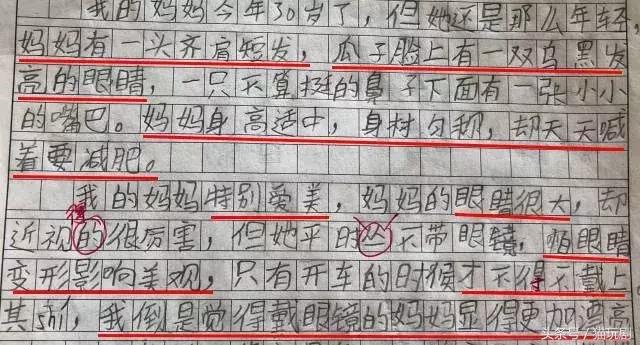 我的妈妈今年30岁了，但她还是那么年轻，
妈妈有一头齐肩短发，瓜子脸上有一双乌黑发
亮的眼睛，一只不算挺的鼻子下面有一张小小
的嘴巴。妈妈身高适中，身材匀称，却天天喊
着要减肥。
我的妈妈特别爱美，妈妈的眼睛很大，却
得
近视的很厉害，但她平时从不带眼镜，怕眼睛
变形影响美观，只有开车的时候才不得不戴上
其shi，我倒是觉得戴眼镜的妈妈显得更加漂亮
头条号／猫玩剧